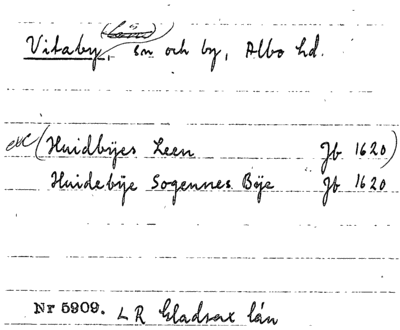 Vitaby, sn och by, Albo hd.
exc (Huidbÿes Leen Jb 1620)
Huidebÿe Sogennes Bÿe Jb 1620
Nr 5909. LR Gladsax län